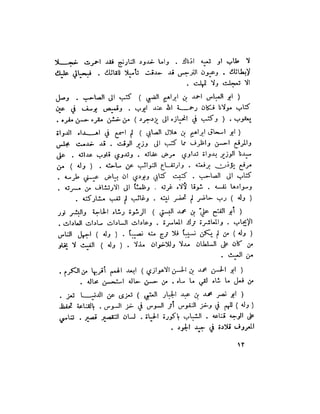 لا طاب او تعيه اذناك . واما خدود النارنج فقد احمرت خجـــلا
لإبطائك . وعيون النرجس قد حدقت تأميلا للقائك . فبحياتي عليك
الا تعجلت ولا تمهلت .
( ابو العباس احمد بن ابراهيم الضبي ) كتب الى الصاحب . وصل
كتاب مولانا فكان رحمـــة الله عند ايوب . وقميص يوسف في عين
يعقوب . ( وكتب في انحيازه الى يزدجرد ) من خشن مقره حسن مفره .
( ابو اسحاق ابراهيم بن هلال الصابي ) لم اسمع في اهــداء الدواة
والمرفع احسن واظرف مما كتب الى وزير الوقت . قد خدمت مجلس
سيدنا الوزير بدواة تداوي مرض عفاته . وتدوي قلوب عداته . على
مرفع يؤذن برفعته . وارتفـاع النوائب عن ساحته . ( وله ) من
كتاب الى الصاحب . كتبت كتابي وبودي ان بياض عيسني طرسه .
وسوادها نقسه . شوقا لآلاء غرته . وظمئاً الى الارتشاف من مسرته .
( وله ) رب حاضر لم تحضر نيته . وغائب لم تغب مشاركته .
( أبو الفتح علي بن محمد البستي ) الرشوة رشاء الحاجة والبشر نور
الإيجاب . والمعاشرة ترك المعاسرة . وعادات السادات سادات العادات .
( وله ) من لم يكن نسيباً فلا ترج منه نصيباً . ( وله ) اجهل الناس
من كان على السلطان مدلا وللاخوان مذلا . ( وله ) الغيث لا يخلو
من العيث .
( ابو الحسن محمد بن الحسن الاهوازي ) ابعد الهمم أقربها من الكرم .
من فعل ما شاء لقي ما ساء . من حسن حاله استحسن محاله .
( ابو نصر محمد بن عبد الجبار العتبي ) تعزى عن الدنيـــا تعز .
( وله ) للهم في وخز النفوس أثر السوس في خز السوس . بالقناعة تحفظ
على الوجه قناعه . الشباب باكورة الحياة . لسان التقصير قصير . تناسي
المعروف قلادة في جيد الجود .
١٢